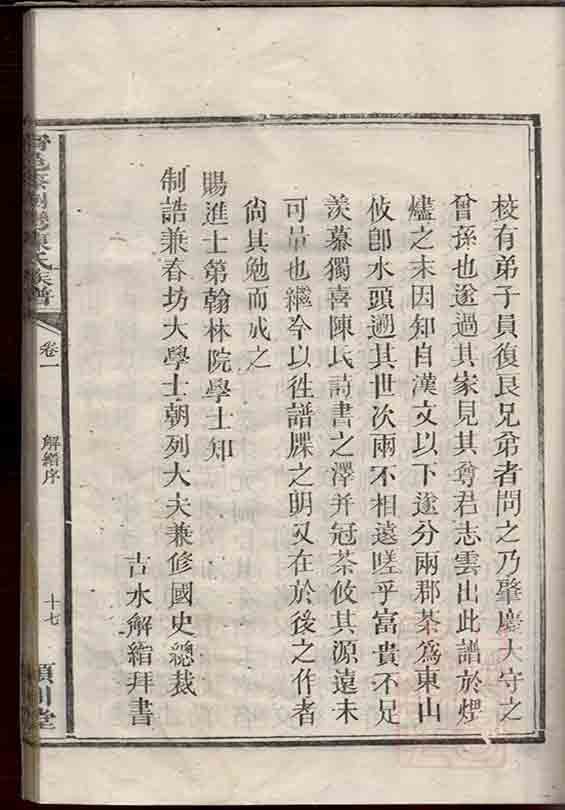 校有弟子員復良兄弟者問之乃肇慶大守之
曾孫也遂過其家見其尊君志雲出此譜於煨
燼之末因知自漢文以下遂分兩郡茶為東山
攸即水頭遡其世次兩不相遠嗟乎富貴不足
羨慕獨喜陳氏詩書之澤并冠茶攸其源遠未
可量也繼今以徃譜牒之明又在於後之作者
尙其勉而成之
賜進士第翰林院學士知
制誥兼春坊大學士朝列大夫兼修國史總裁
吉水解縉拜書
陳氏族譜
卷一
解縉序
十七
潁川堂